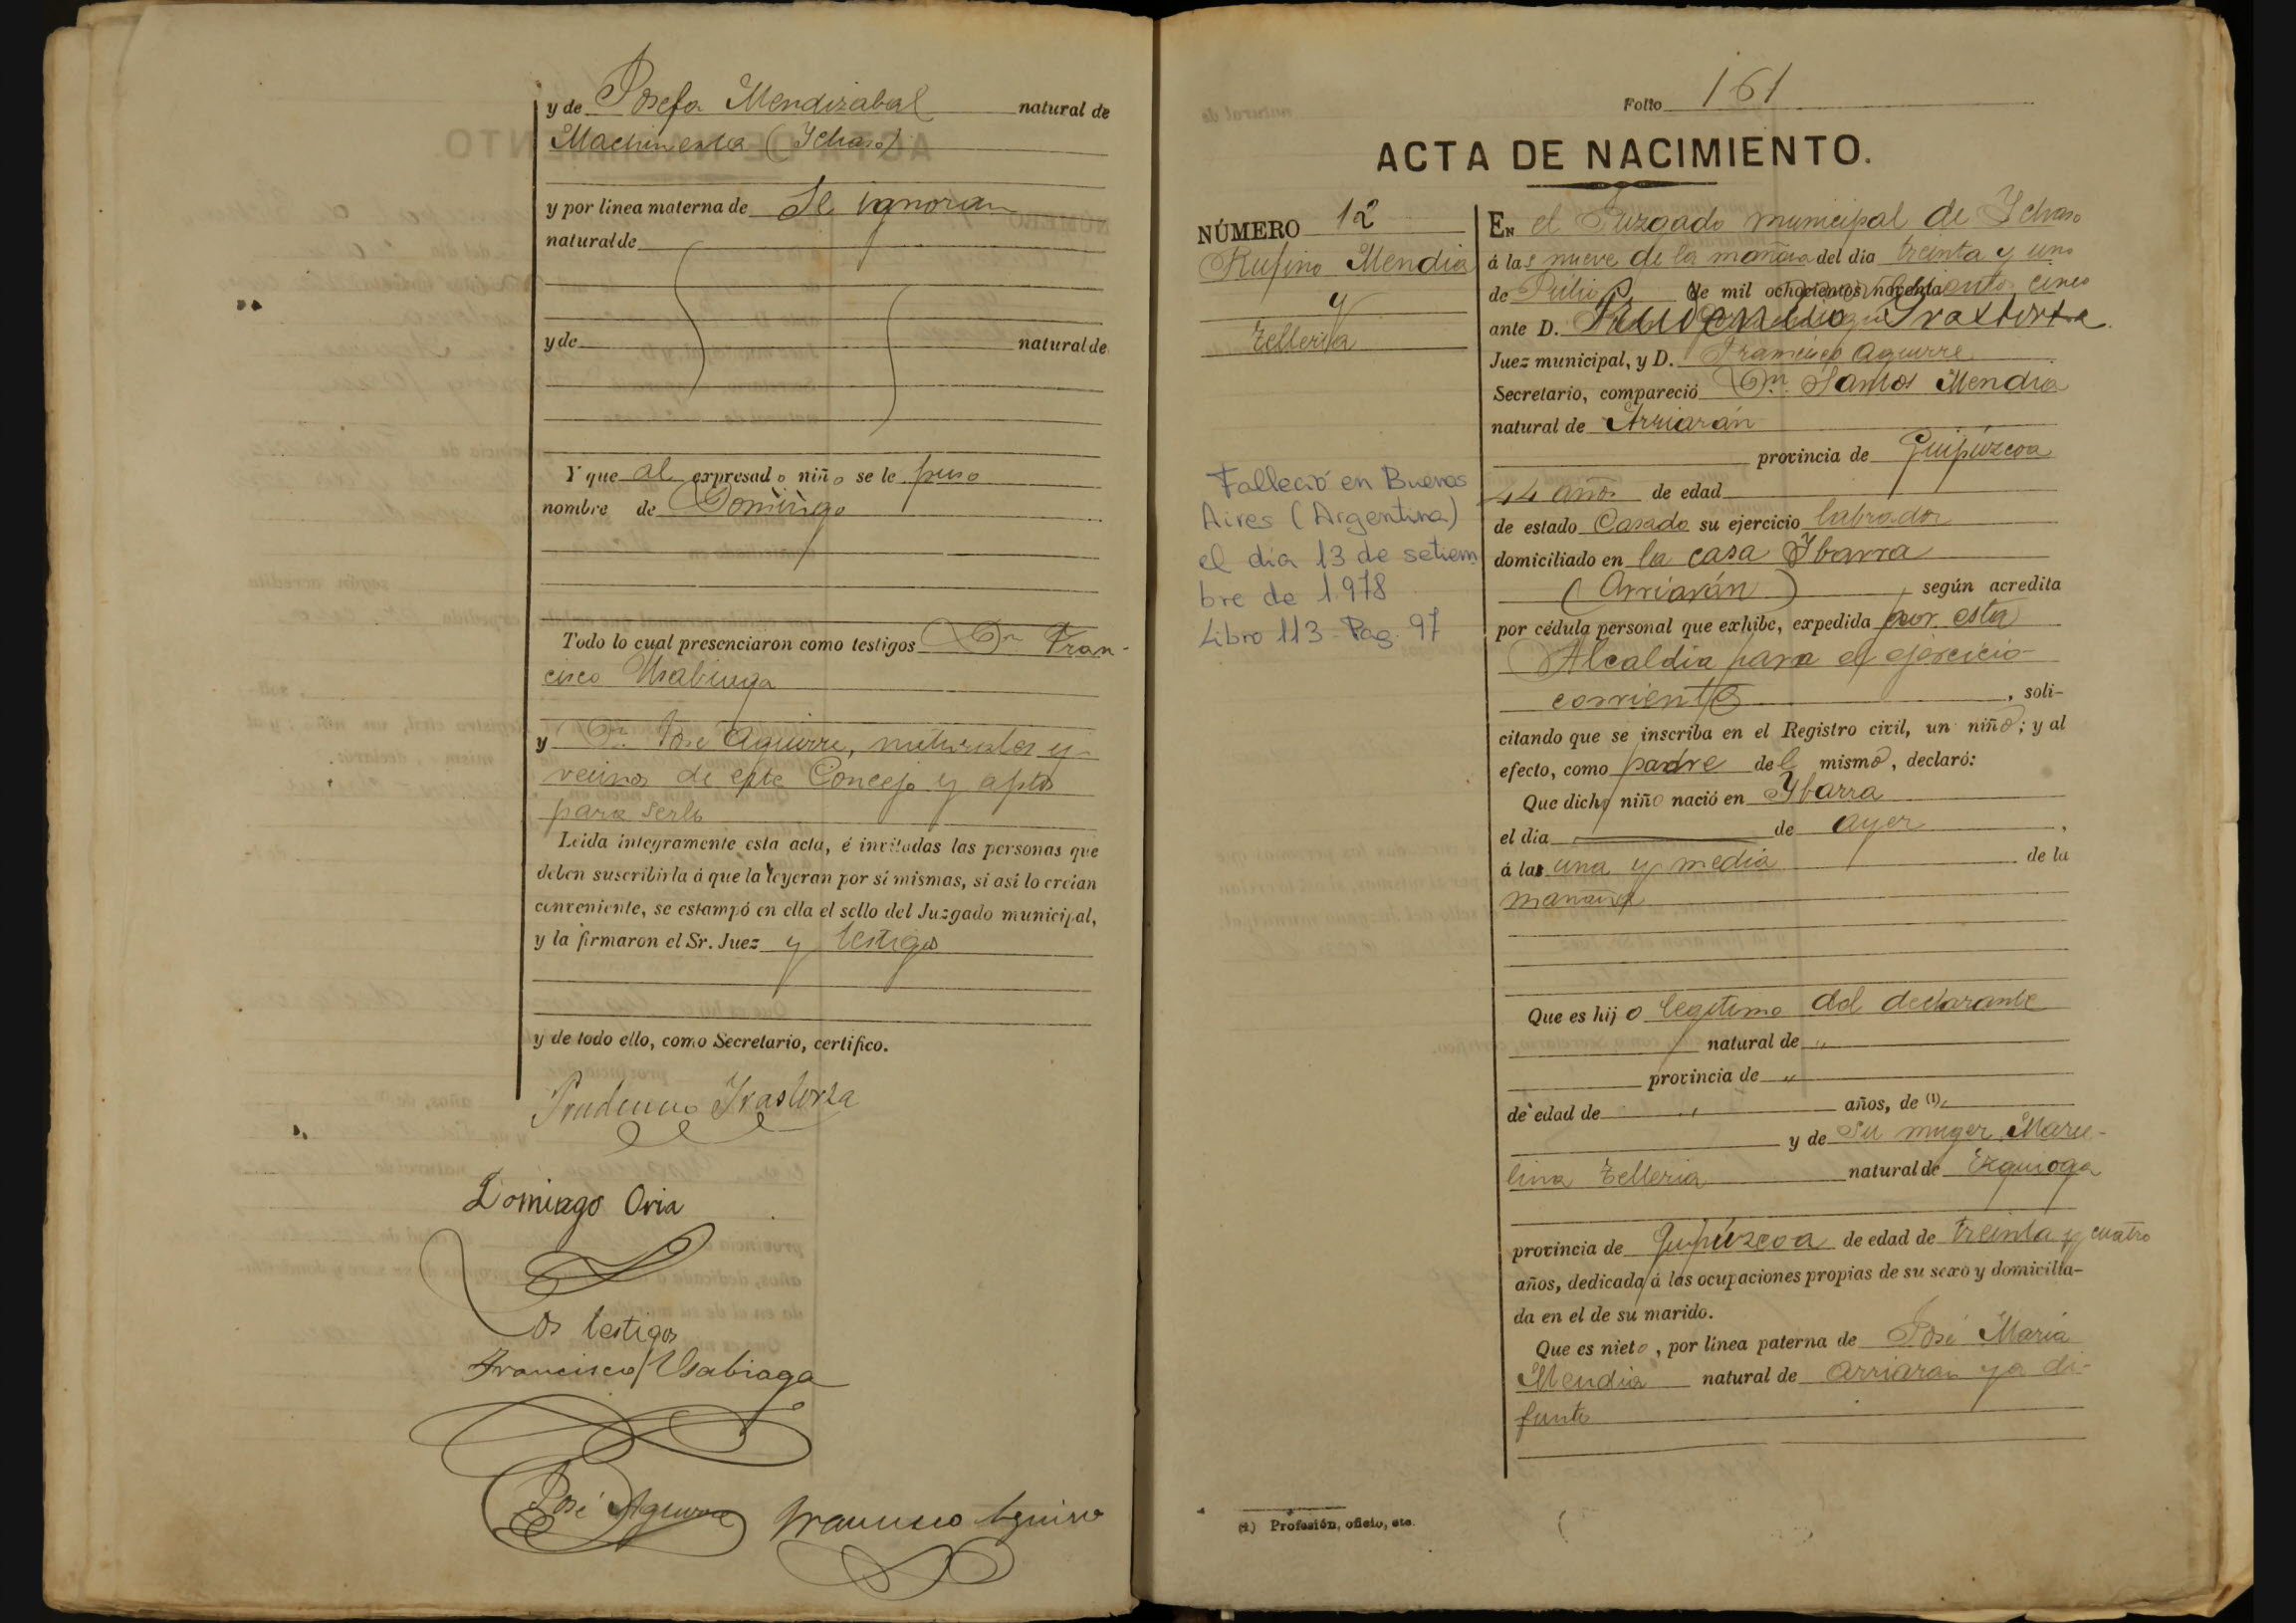 y de Josefa Mendizabal natural de
Machinenta (Ychaso)
y por linea materna de Se ignoran
natural de
y de natural de
Y que al expresado niño se le puso
nombre de Domingo
Todo lo cual presenciaron como testigos Dn Fran-
cisco Usabiaga
y Dn José Aguirre, naturales y
vecinos de este Concejo y aptos
para serlo
Leida integramente esta acta, é invitadas las personas que
deben suscribirla á que la leyeran por sí mismas, si así lo creían
conveniente, se estampó en ella el sello del Juzgado municipal,
y la firmaron el Sr. Juez y testigos
y de todo ello, como Secretario, certifico.
Prudencio Yrastorza
Domingo Oria
Los testigos
Francisco Usabiaga
José Aguirre Francisco Aguirre
Folio 161
ACTA DE NACIMIENTO.
NÚMERO 12
Rufino Mendia
y
Telleria
Falleció en Buenos
Aires (Argentina)
el día 13 de setiem
bre de 1.978
Libro 113 - Pag. 97
EN el Juzgado municipal de Ychaso
á las nueve de la mañana del dia treinta y uno
de Julio de mil ochocientos noventa cinco
ante D. Prudencio Yrastorza
Juez municipal, y D. Francisco Aguirre
Secretario, compareció Dn. Santos Mendia
natural de Arriarán
provincia de Guipúzcoa
44 años de edad
de estado Casado su ejercicio labrador
domiciliado en la casa Ybarra
(Arriarán) según acredita
por cédula personal que exhibe, expedida por esta
Alcaldia para el ejercicio
corriente, soli-
citando que se inscriba en el Registro civil, un niño; y al
efecto, como padre del mismo, declaró:
Que dicho niño nació en Ybarra
el dia de ayer,
á las una y media de la
mañana
Que es hijo legitimo del declarante
natural de "
provincia de "
de edad de " años, de (1)
y de su muger Marce-
lina Telleria natural de Ezquioga
provincia de Guipúzcoa de edad de treinta y cuatro
años, dedicada á las ocupaciones propias de su sexo y domicilia-
da en el de su marido.
Que es nieto, por linea paterna de José María
Mendia natural de Arriaran ya di-
funto
(1) Profesión, oficio, etc.